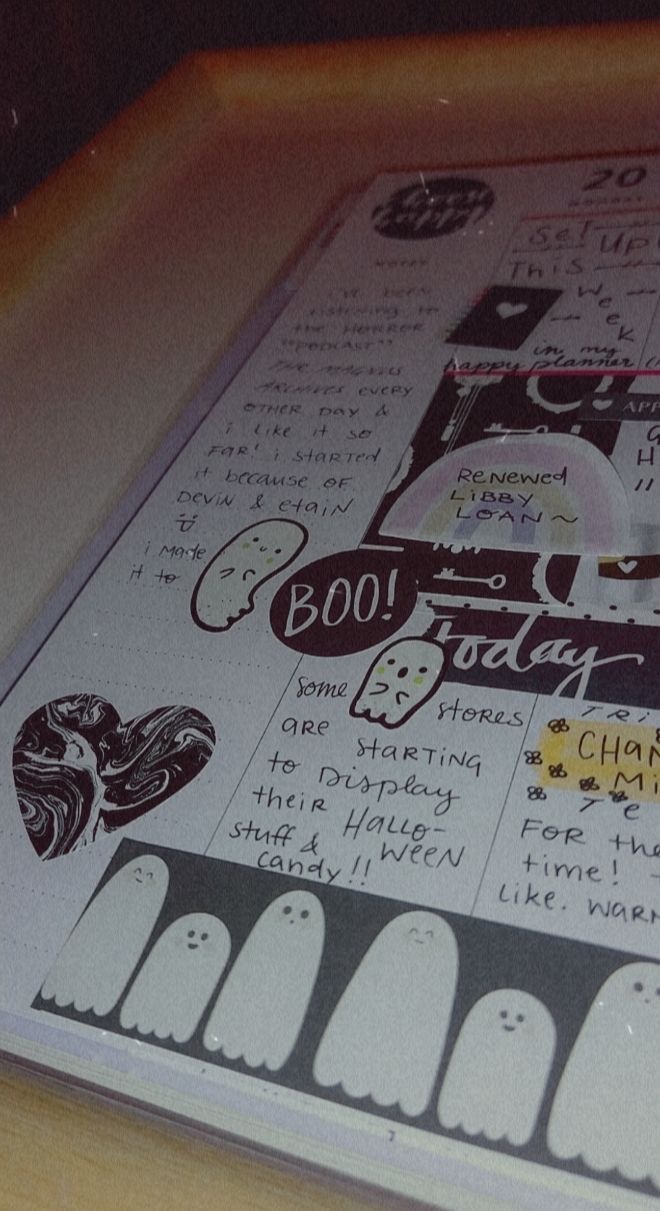 20
Set
up
This
We
e
k
in my
happy planner
notes
i've been
listening to
the HORROR
"PODCAST"
THE MAGNUS
ARCHIVES every
OTHER DAY &
i like it so
FAR! i STARTED
it because OF
DEVIN & etain
i made
it to
APP
H
RENEWED
LIBBY
LOAN ~
BOO!
today
some stores
are STARTING
to Display
their HALLO-
WEEN
stuff &
candy!!
TRI
CHAN
Mi
FOR the
time! -
Like. WARM